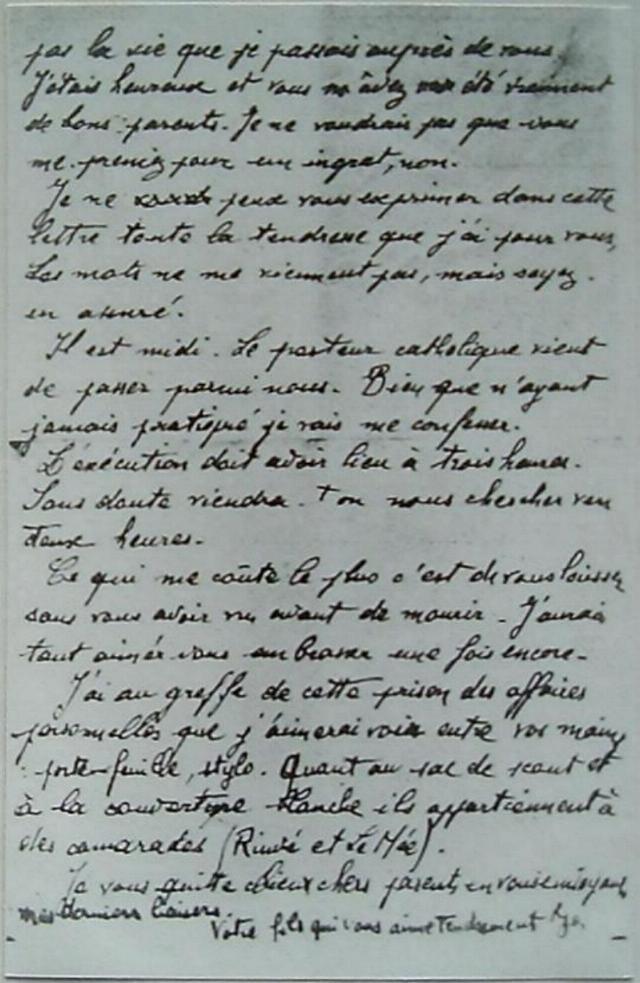 pas la vie que je passais auprès de vous.
J'étais heureux et vous m'avez été vraiment
de bons parents. Je ne voudrais pas que vous
me preniez pour un ingrat, non.
Je ne peux vous exprimer dans cette
lettre toute la tendresse que j'ai pour vous,
Les mots ne me viennent pas, mais soyez
en assuré.
Il est midi. Le pasteur catholique vient
de passer parmi nous. Bien que n'ayant
jamais pratiqué je vais me confesser.
L'éxécution doit avoir lieu à trois heures.
Sans doute viendra-t-on nous chercher vers
deux heures.
Ce qui me coûte le plus c'est de vous laisser
sans vous avoir vu avant de mourir. J'aurais
tant aimé vous embrasser une fois encore.
J'ai au greffe de cette prison des affaires
personnelles que j'aimerai voir entre vos mains
: porte-feuille, stylo. Quant au sac de scout et
à la couverture blanche ils appartiennent à
des camarades (Rivvé et Le Mée).
Je vous quitte chers parents en vous envoyant
mes derniers baisers.
Votre fils qui vous aime tendrement